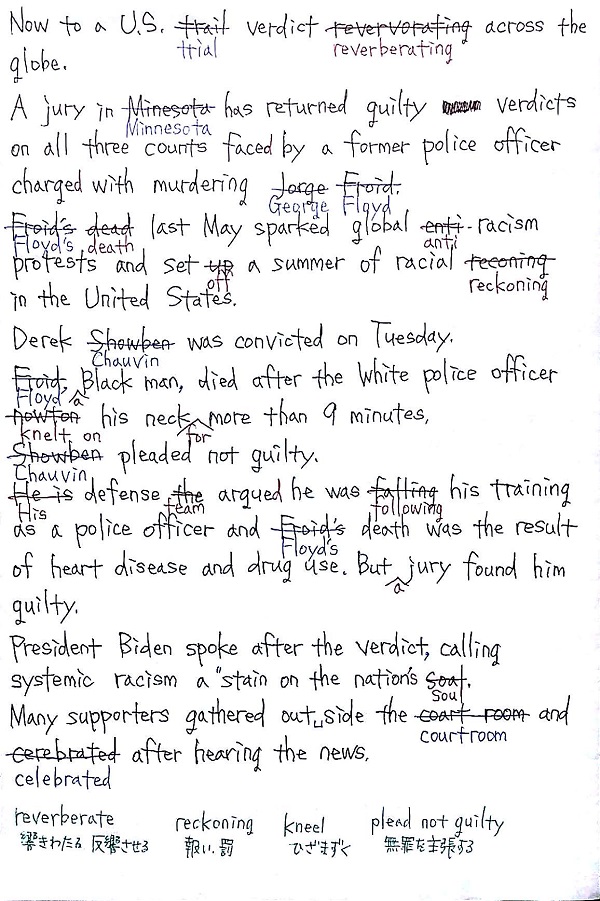 Now to a U.S. trail verdict revervorating across the
trial reverberating
globe.
A jury in Minesota has returned guilty verdicts
Minnesota
on all three counts faced by a former police officer
charged with murdering Jorge Froid.
George Floyd
Froid's dead last May sparked global enti-racism
Floyd's death anti
protests and set up a summer of racial reconing
off reckoning
in the United States.
Derek Showben was convicted on Tuesday.
Chauvin
Froid, Black man, died after the White police officer
Floyd a
nowton his neck more than 9 minutes,
knelt on for
Showben pleaded not guilty.
Chauvin
He is defense the argued he was falling his training
His team following
as a police officer and Froid's death was the result
Floyd's
of heart disease and drug use. But jury found him
a
guilty.
President Biden spoke after the verdict, calling
systemic racism a "stain on the nation's soat.
soul
Many supporters gathered out side the court room and
courtroom
cerebrated after hearing the news.
celebrated
reverberate reckoning kneel plead not guilty
響きわたる 反響させる 報い、罰 ひざまずく 無罪を主張する